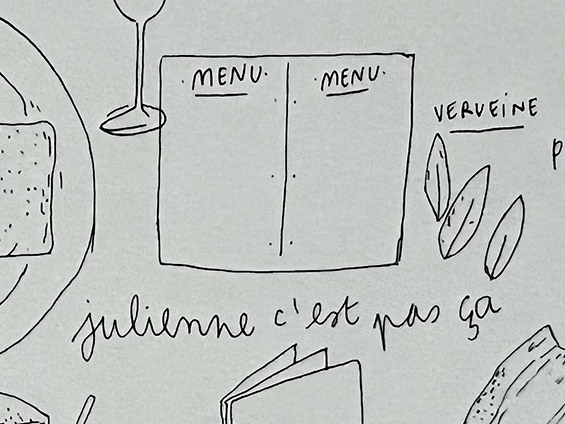 MENU MENU
VERVEINE
p
julienne c'est pas ça